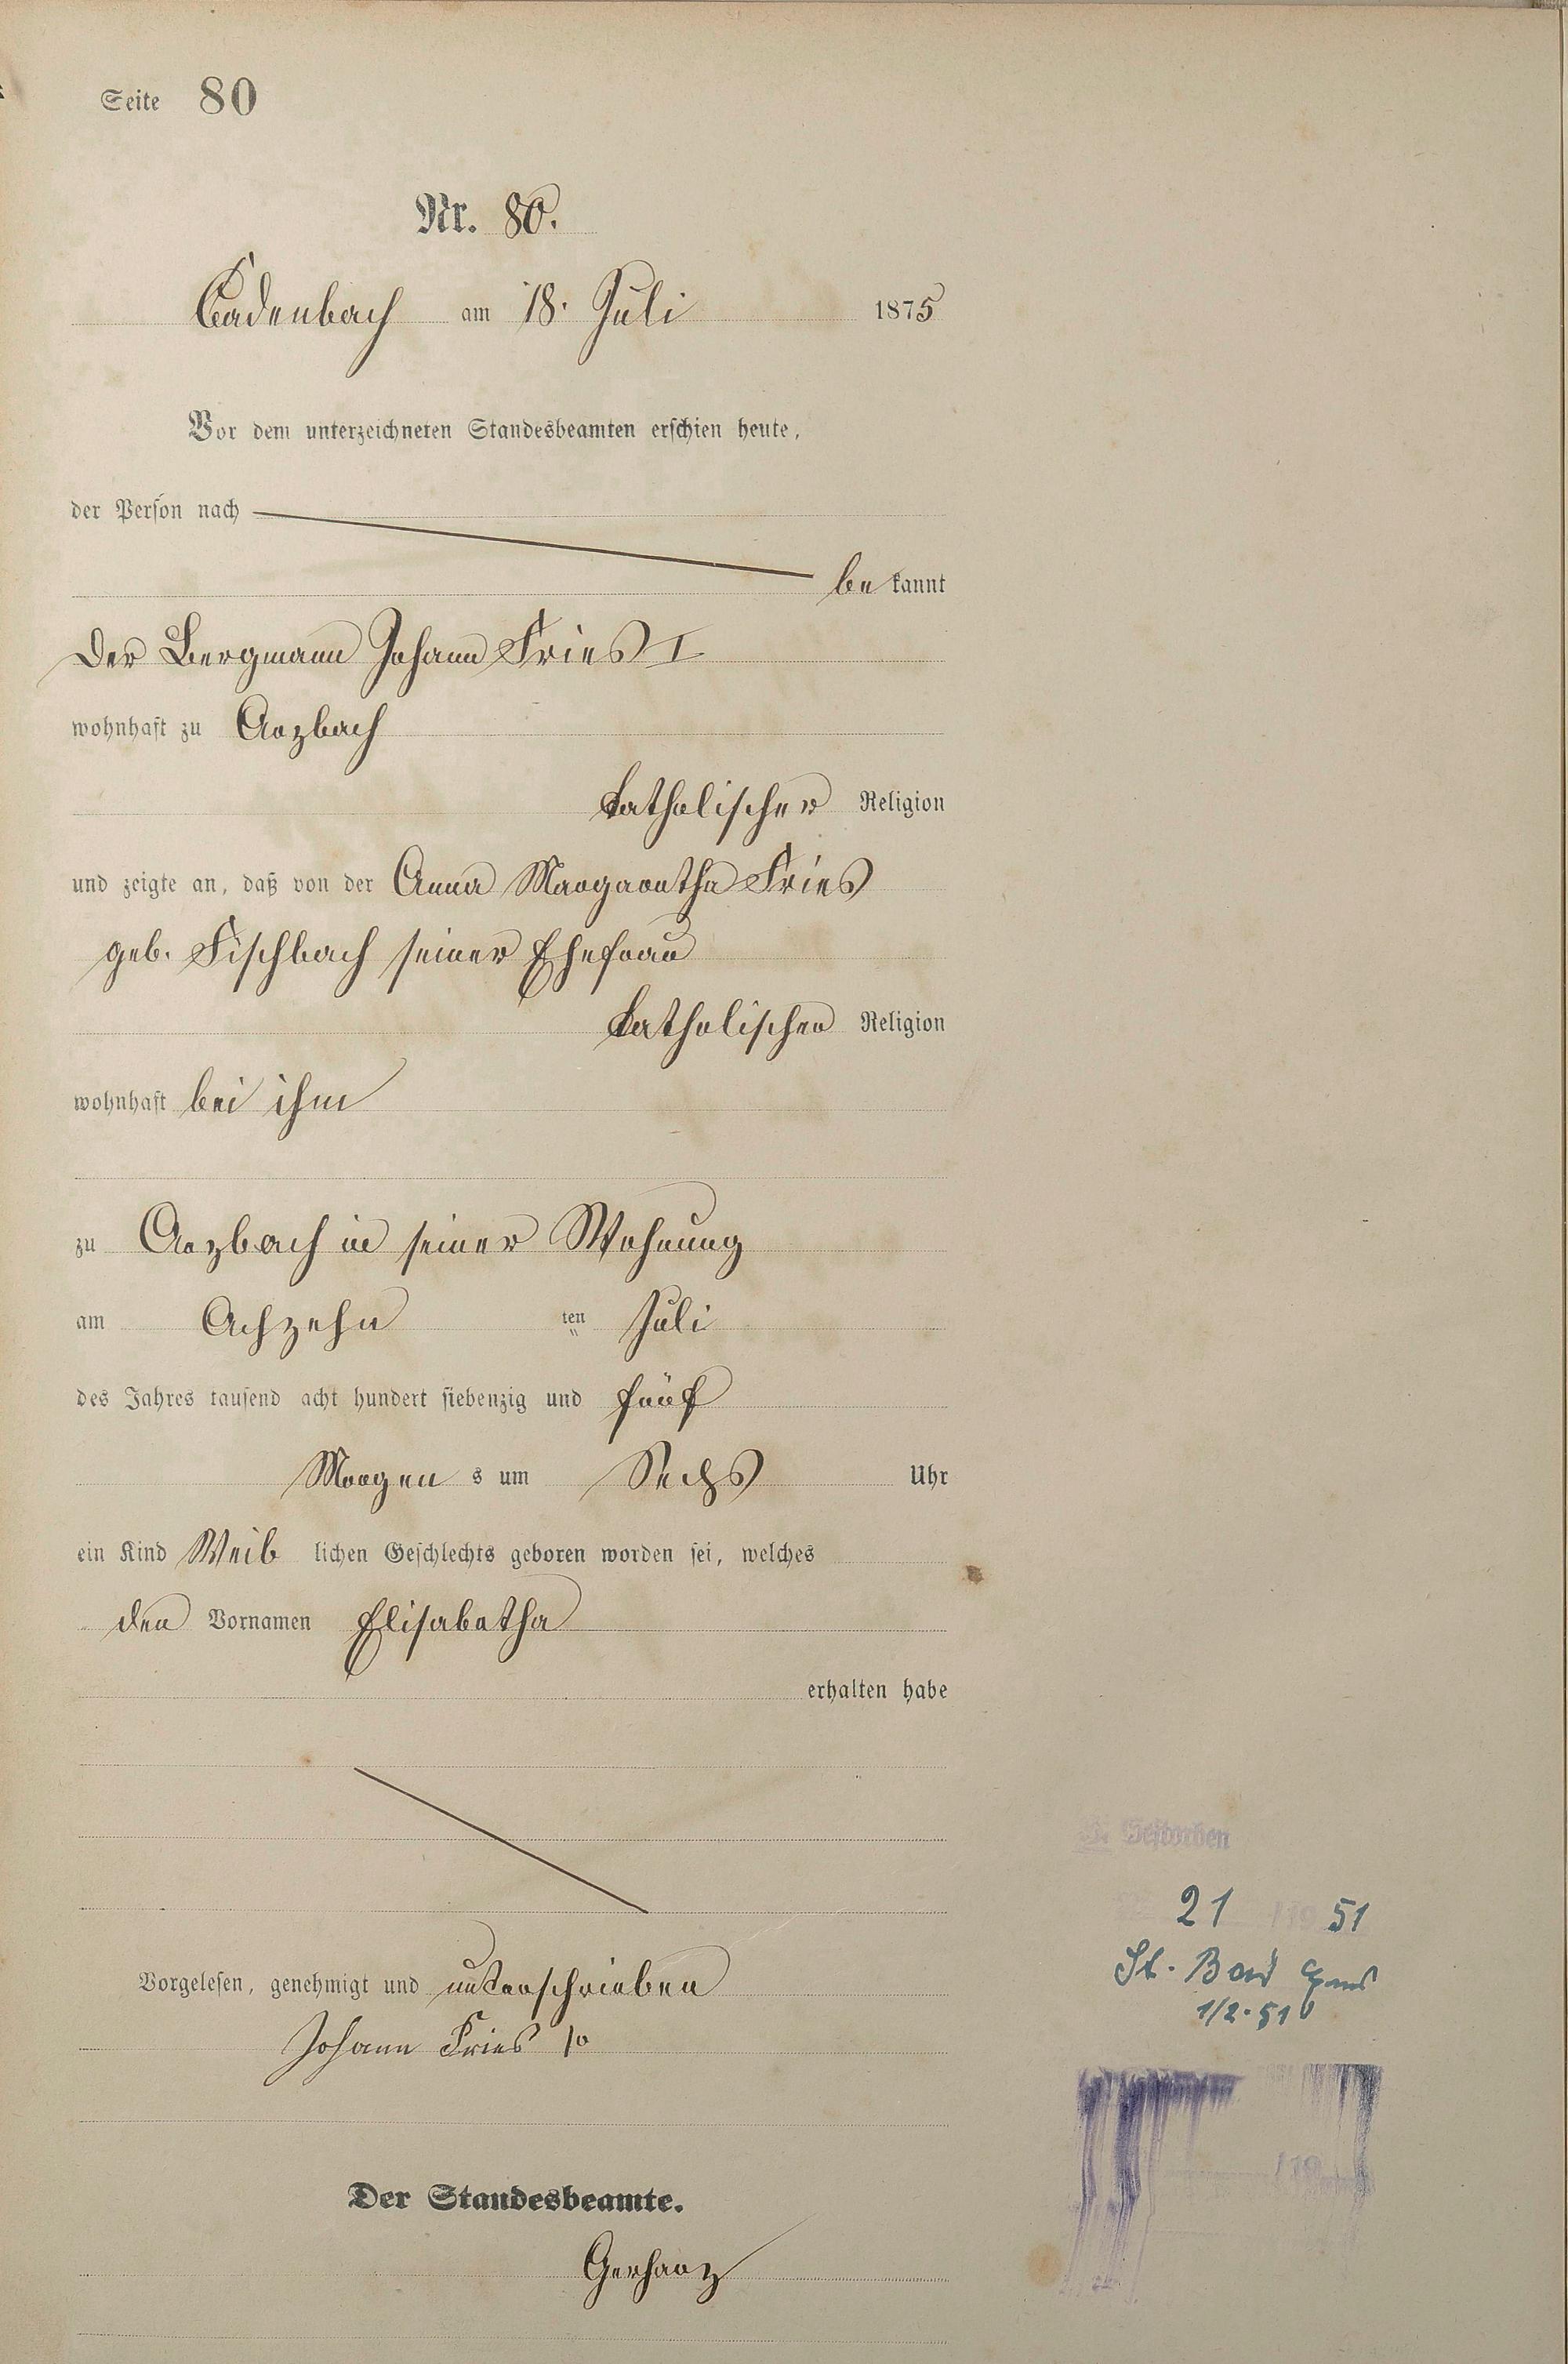 Seite 80
Nr. 80.
Cadenbach am 18. Juli 1875
Vor dem unterzeichneten Standesbeamten erschien heute,
der Person nach
be kannt
der Bergmann Johann Fries I
wohnhaft zu Arzbach
katholischer Religion
und zeigte an, daß von der Anna Margaretha Fries
geb. Fischbach seiner Ehefrau
katholischer Religion
wohnhaft bei ihm
zu Arzbach in seiner Wohnung
am Achzehn ten Juli
des Jahres tausend acht hundert siebenzig und fünf
Morgen s um Sechs Uhr
ein Kind Weib lichen Geschlechts geboren worden sei, welches
den Vornamen Elisabetha
erhalten habe
Vorgelesen, genehmigt und unterschrieben
Johann Fries
Der Standesbeamte.
Gerharz
Gestorben
21 51
St. Bad Ems
1/2.51